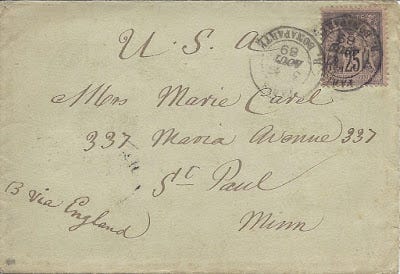 U. S. A
R. BONAPARTE
AOUT
89
25
Mrs Marie Carel
337 Maria Avenue 337
St Paul
(3 via England)
Minn